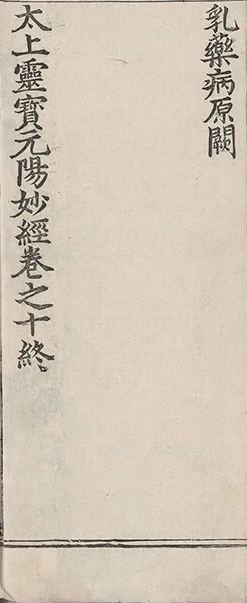 乳藥病原闕
太上靈寶元陽妙經卷之十終